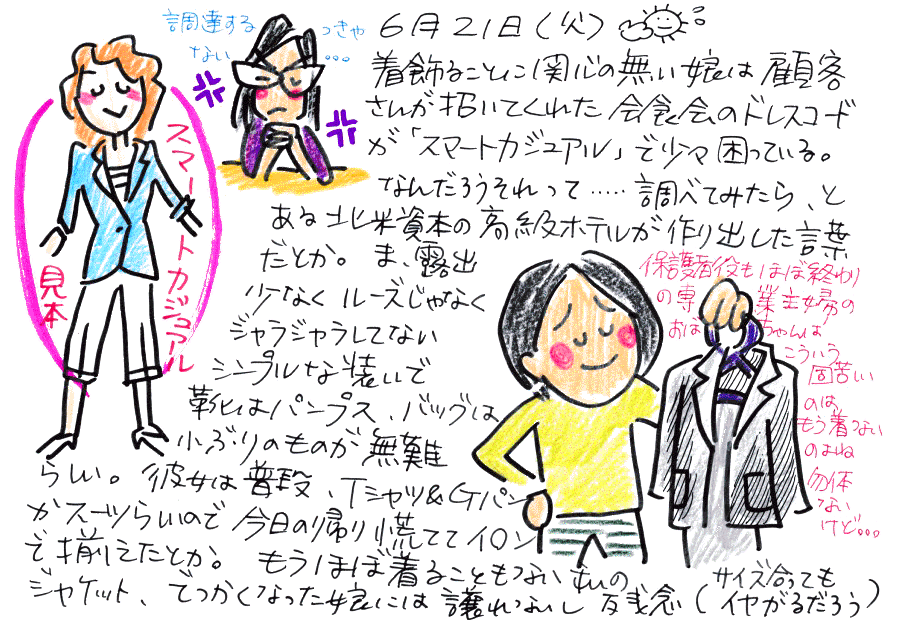 6月21日(火)
着飾ることに関心の無い娘は顧客
さんが招いてくれた会食会のドレスコード
が「スマートカジュアル」で少々困っている。
なんだろうそれって……調べてみたら、と
ある北米資本の高級ホテルが作り出した言葉
だとか。ま、露出
少なくルーズじゃなく
ジャラジャラしてない
シンプルな装いで
靴はパンプス、バッグは
小ぶりのものが無難
らしい。彼女は普段、Tシャツ&Gパン
かスーツらいので今日の帰り慌ててイロン
で揃えたとか。もうほぼ着ることもない私の
ジャケット、でっかくなった娘には譲れないし残念(サイズ合っても
イヤがるだろう)
調達する
っきゃ
ない
…
スマートカジュアル
見本
保護者役もほぼ終わり
の専業主婦の
おばちゃんは
こういう
固苦しい
のは
もう着ない
のよね
勿体
ない
けど…